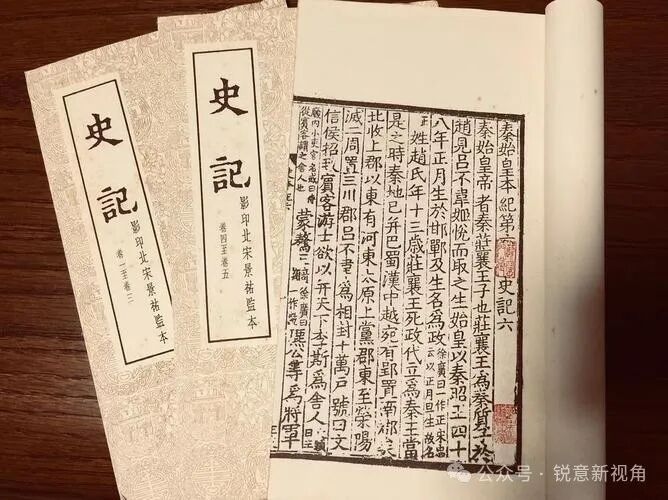 史記
影印北宋景祐監本
卷一至卷三
史記
影印北宋景祐監本
卷四至卷五
秦始皇本紀第六 史記六
秦始皇帝者秦莊襄王子也莊襄王為秦質子於
趙見呂不韋姬悅而取之生始皇以秦昭王四十
八年正月生於邯鄲及生名為政徐廣曰一作正宋忠云以正月旦生故名正
姓趙氏年十三歳莊襄王死政代立為秦王當
是之時秦地已并巴蜀漢中越宛有郢置南郡矣
北收上郡以東有河東太原上黨郡東至滎陽
滅二周置三川郡呂不韋為相封十萬戶號曰文
信侯招致賓客游士欲以并天下李斯為舍人
廄內小吏官名或曰侍從賓客謂之舍人也蒙驁徐廣曰一作麃公等為將軍
公众号·锐意新视角